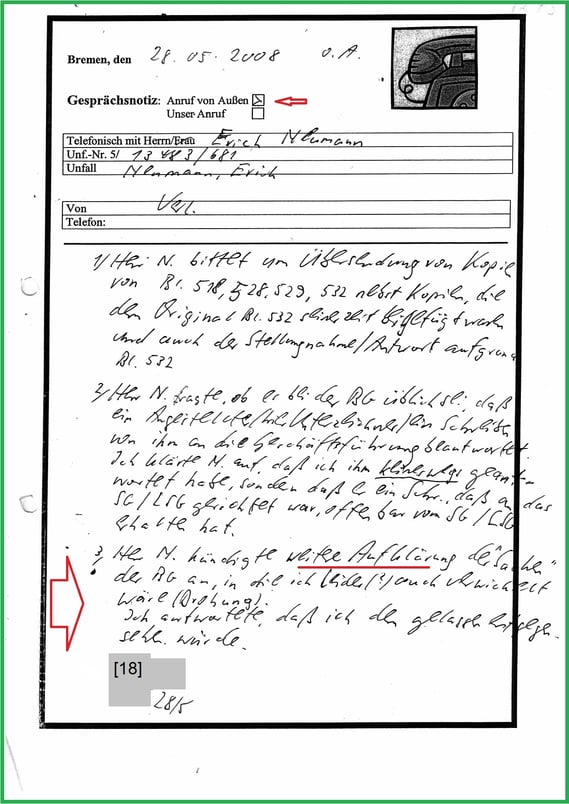 Bremen, den 28.05.2008 o.A.
Gesprächsnotiz: Anruf von Außen
Unser Anruf
Telefonisch mit Herrn/Frau Erich Neumann
Unf.-Nr. 5/ 13 483/681
Unfall Neumann, Erich
Von Verl.
Telefon:
1) Herr N. bittet um Übersendung von Kopie
von Bl. 518, 528, 529, 532 nebst Kopien, die
dem Original Bl. 532 seinerzeit beigefügt waren
und auch der Stellungnahme/Antwort aufgrund
Bl. 532
2) Herr N. fragte, ob es bei der BG üblich sei, daß
ein Angestellter/ Unterzeichner/ein Schreiben
von ihm an die Geschäftsführung beantwortet.
Ich klärte N. auf, daß ich ihm keineswegs geant-
wortet habe, sondern daß er ein Schr., daß an das
SG/LSG gerichtet war, offenbar vom SG/LSG
erhalten hat.
3) Herr N. kündigte weitere Aufklärung der "Sachen"
der BG an, in die ich leider(!) auch verwickelt
wäre (Drohung).
Ich antwortete, daß ich dem gelassen entgegen-
sehen würde.
[18]
28/5